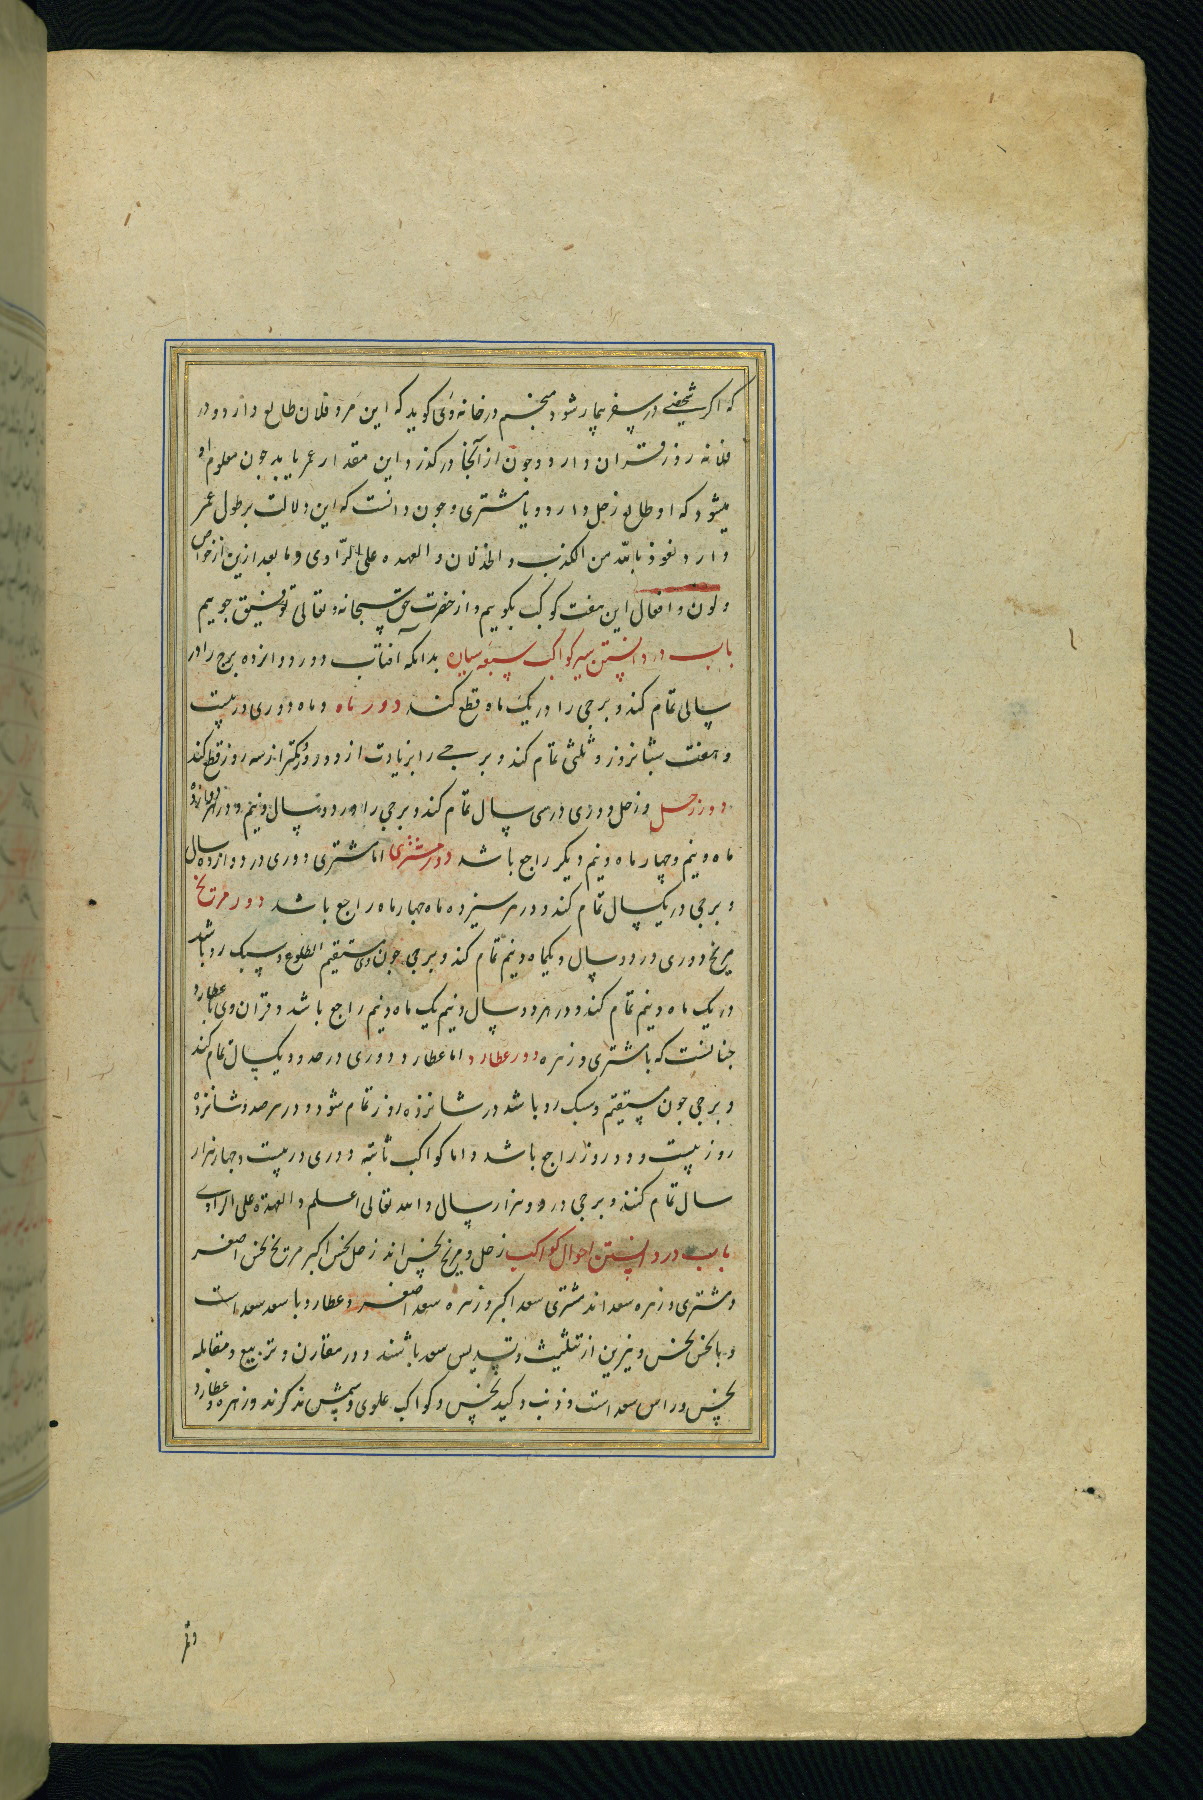 که اگر شخصی در سفر بیمار شود منجم در خانه وی کوید که این مرد فلان طالع دارد و در
فلانه روز قران دارد و جون از آنجا در کذرد این مقدار عمر یابد جون معلوم او
میشود که او طالع زحل دارد و یا مشتری و جون دانست که این دلالت بر طول عمر
دارد نعوذ بالله من الکذب و الخذلان و العهده علی الراوی و ما بعد ازین از خواص
و لون و افعال این هفت کوکب بکوییم و از حضرت حق سبحانه و تعالی توفیق جوییم
باب در دانستن سیر کواکب سبعه سیاره بدانکه افتاب دور دوازده برج را در
سالی تمام کند و برجی را در یک ماه قطع کند دور ماه و ماه دوری در بیست
و هفت شبانروز و ثلثی تمام کند و برجی را بزیادت از دو روز و کمتر از سه روز قطع کند
دور زحل و زحل دوری در سی سال تمام کند و برجی را در دو سال و نیم و در هر دوازده
ماه و نیم و چهار ماه و نیم دیکر راجع باشد دور مشتری اما مشتری دوری در دوازده سال
و برجی در یکسال تمام کند و در هر سیزده ماه جهار ماه راجع باشد دور مریخ
مریخ دوری در دو سال و یکماه و نیم تمام کند و برجی جون وی مستقیم الطلوع و سبک رو باشد
در یک ماه و نیم تمام کند و در هر دو سال و نیم یک ماه و نیم راجع باشد و قران وی با عطارد
جنانست که با مشتری و زهره دور عطارد اما عطارد دوری در حدود یکسال تمام کند
و برجی جون مستقیم و سبک رو باشد در شانزده روز تمام شود و در هر صد و شانزده
روز بیست و دو روز راجع باشد و اما کواکب ثابته دوری در بیست و جهار هزار
سال تمام کنند و برجی در دو هزار سال و الله تعالی اعلم و العهدة علی الراوی
باب در دانستن احوال کواکب زحل و مریخ نحس اند زحل نحس اکبر مریخ نحس اصغر
و مشتری و زهره سعد اند مشتری سعد اکبر و زهره سعد اصغر و عطارد با سعد سعد است
و با نحس نحس و نیرین از تثلیث و تسدیس سعد باشند و در مقارن و تربیع و مقابله
نحس و راس سعد است و ذنب و کید نحس و کواکب علوی و شمس مذکرند و زهره و عطارد
و قمر